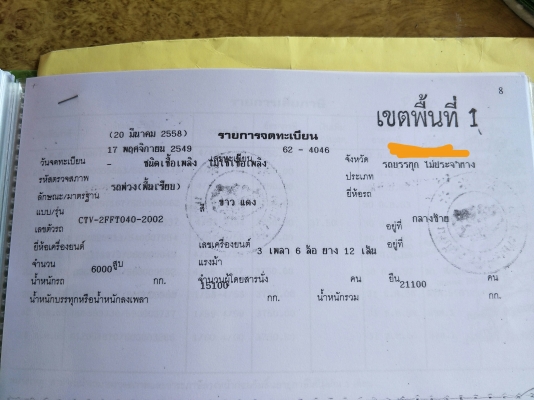 8
เขตพื้นที่ 1
(20 มีนาคม 2558) รายการจดทะเบียน
17 พฤศจิกายน 2549 62 - 4046
วันจดทะเบียน - ชนิดเชื้อเพลิง ไม่ใช้เชื้อเพลิง เลขทะเบียน จังหวัด รถบรรทุก ไม่ประจำทาง
รหัสตรวจสภาพ ประเภท
ลักษณะ/มาตรฐาน รถพ่วง(พื้นเรียบ) ยี่ห้อรถ
แบบ/รุ่น CTV-2FFT040-2002 สี ขาว แดง
เลขตัวรถ อยู่ที่ กลางซ้าย
ยี่ห้อเครื่องยนต์ เลขเครื่องยนต์ 3 เพลา 6 ล้อ ยาง 12 เส้น อยู่ที่
จำนวน สูบ แรงม้า
น้ำหนักรถ 6000 กก. จำนวนผู้โดยสารนั่ง 15100 คน ยืน 21100 คน
น้ำหนักบรรทุกหรือน้ำหนักลงเพลา กก. น้ำหนักรวม กก.